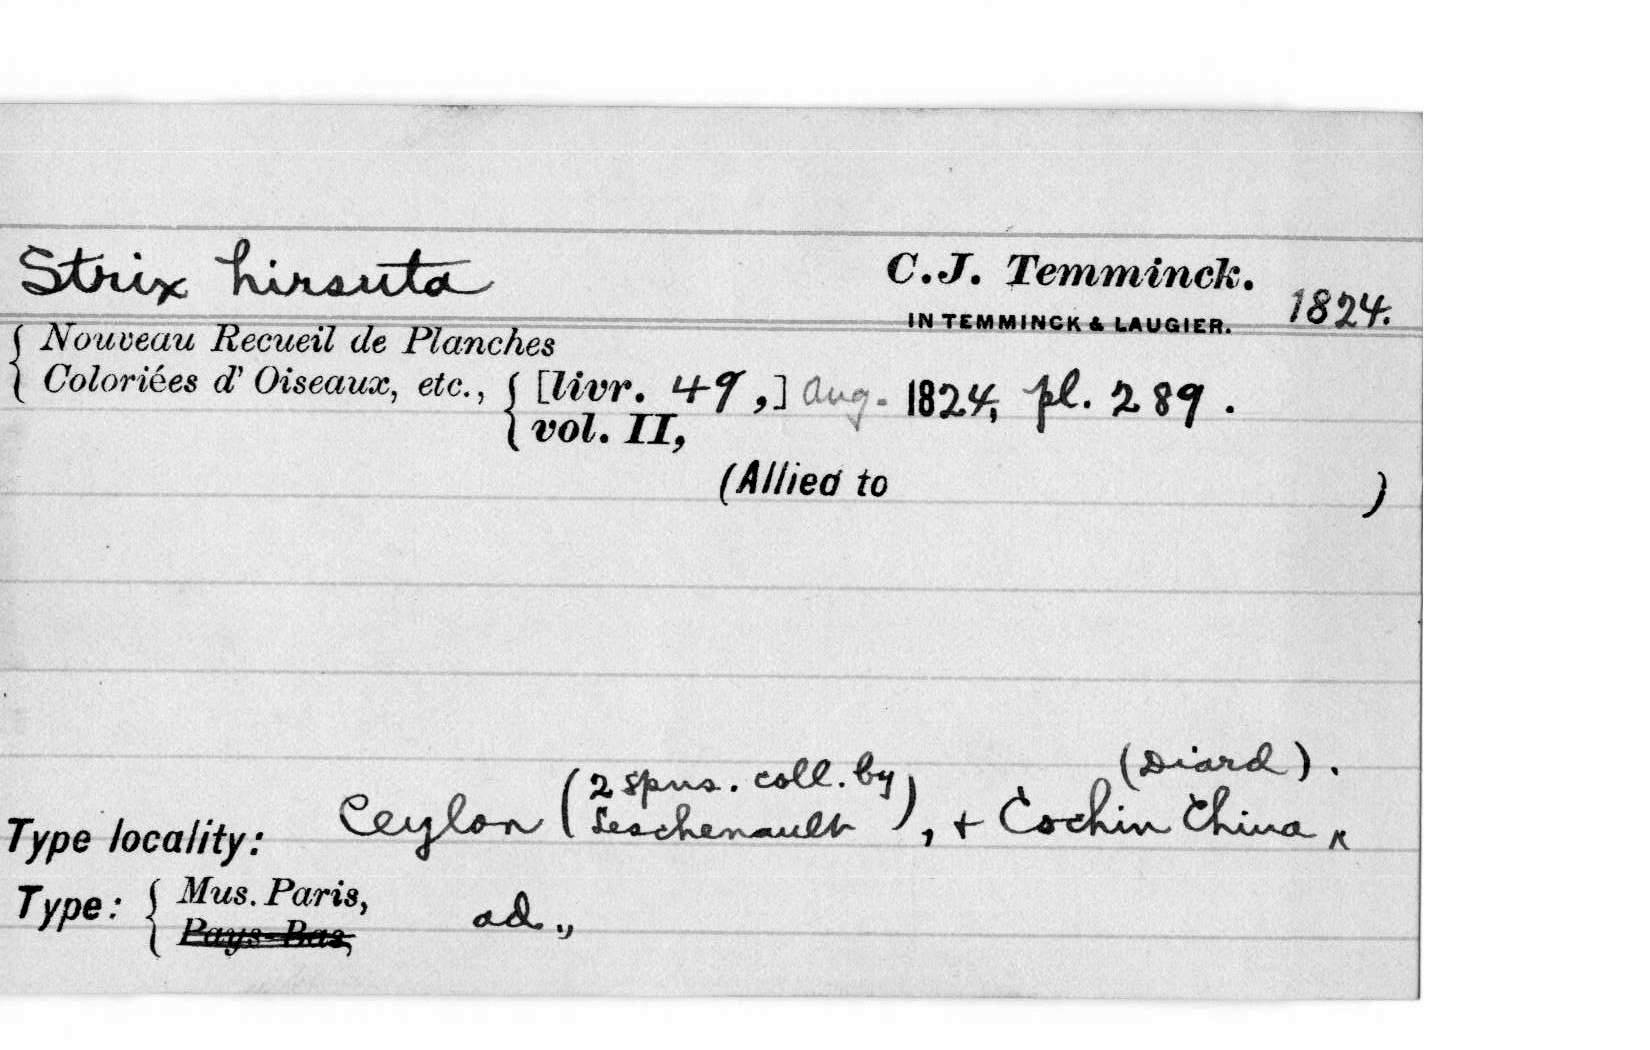 Strix hirsuta C.J. Temminck.
IN TEMMINCK & LAUGIER. 1824.
{ Nouveau Recueil de Planches
{ Coloriées d'Oiseaux, etc., { [livr. 49,] Aug. 1824, pl. 289.
{ vol. II,
(Allied to )
(Diard).
Type locality: Ceylon (2 spns. coll. by
Leschenault), + Cochin China ^
Type: { Mus. Paris, ad.,
{ Pays-Bas,